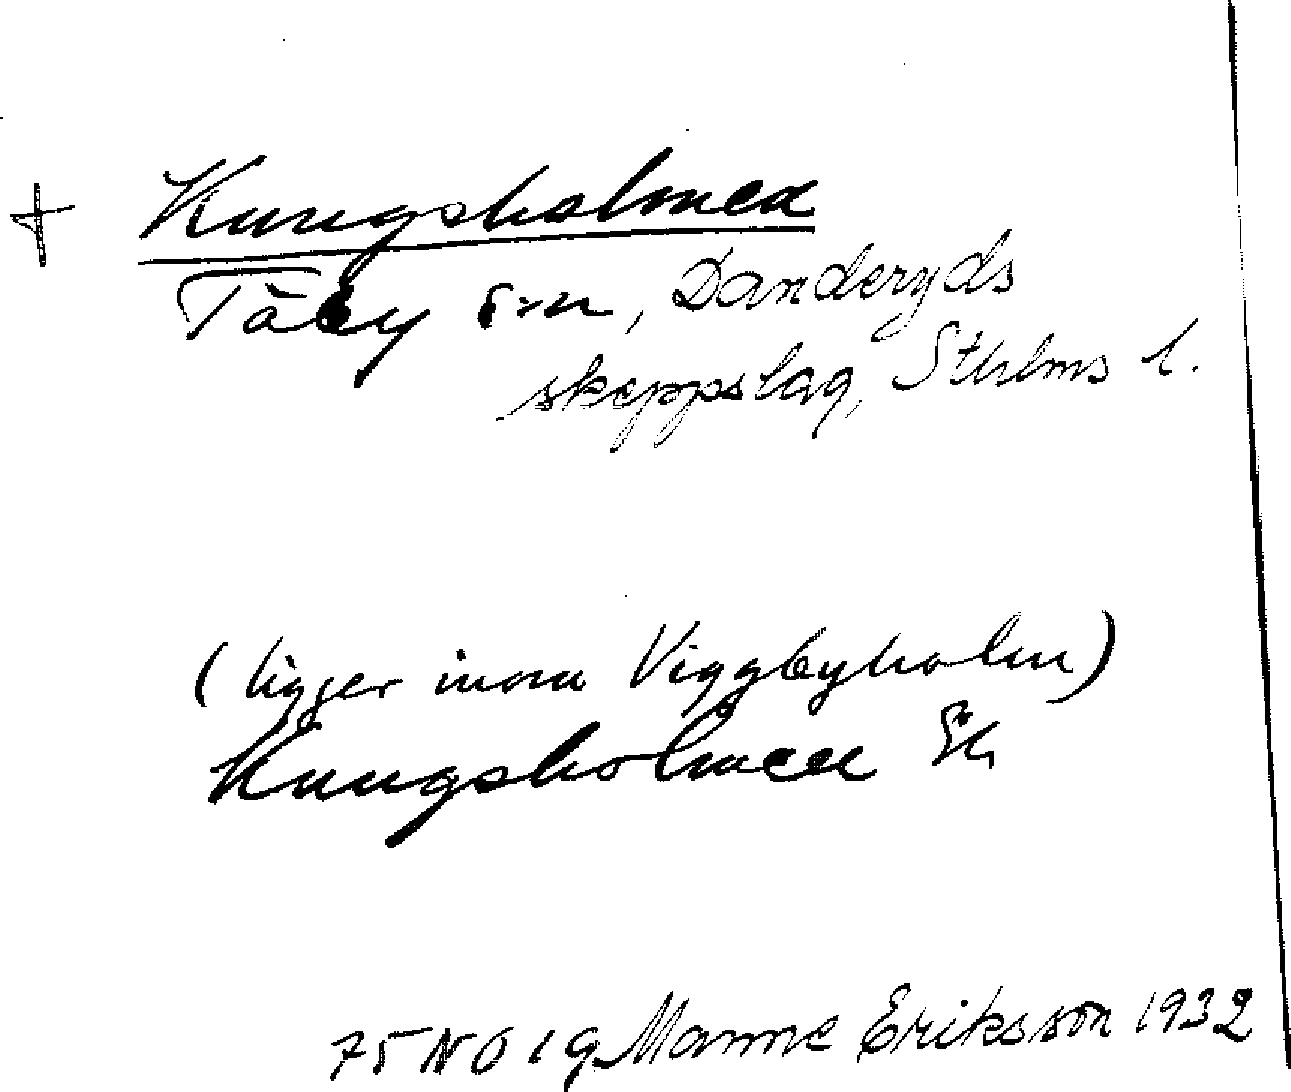 + Kungsholmen
Täby s:n, Danderyds
skeppslag, Sthlms l.
(ligger inom Viggbyholm)
Kungsholmen Ek
75 NO 19 Manne Eriksson 1932